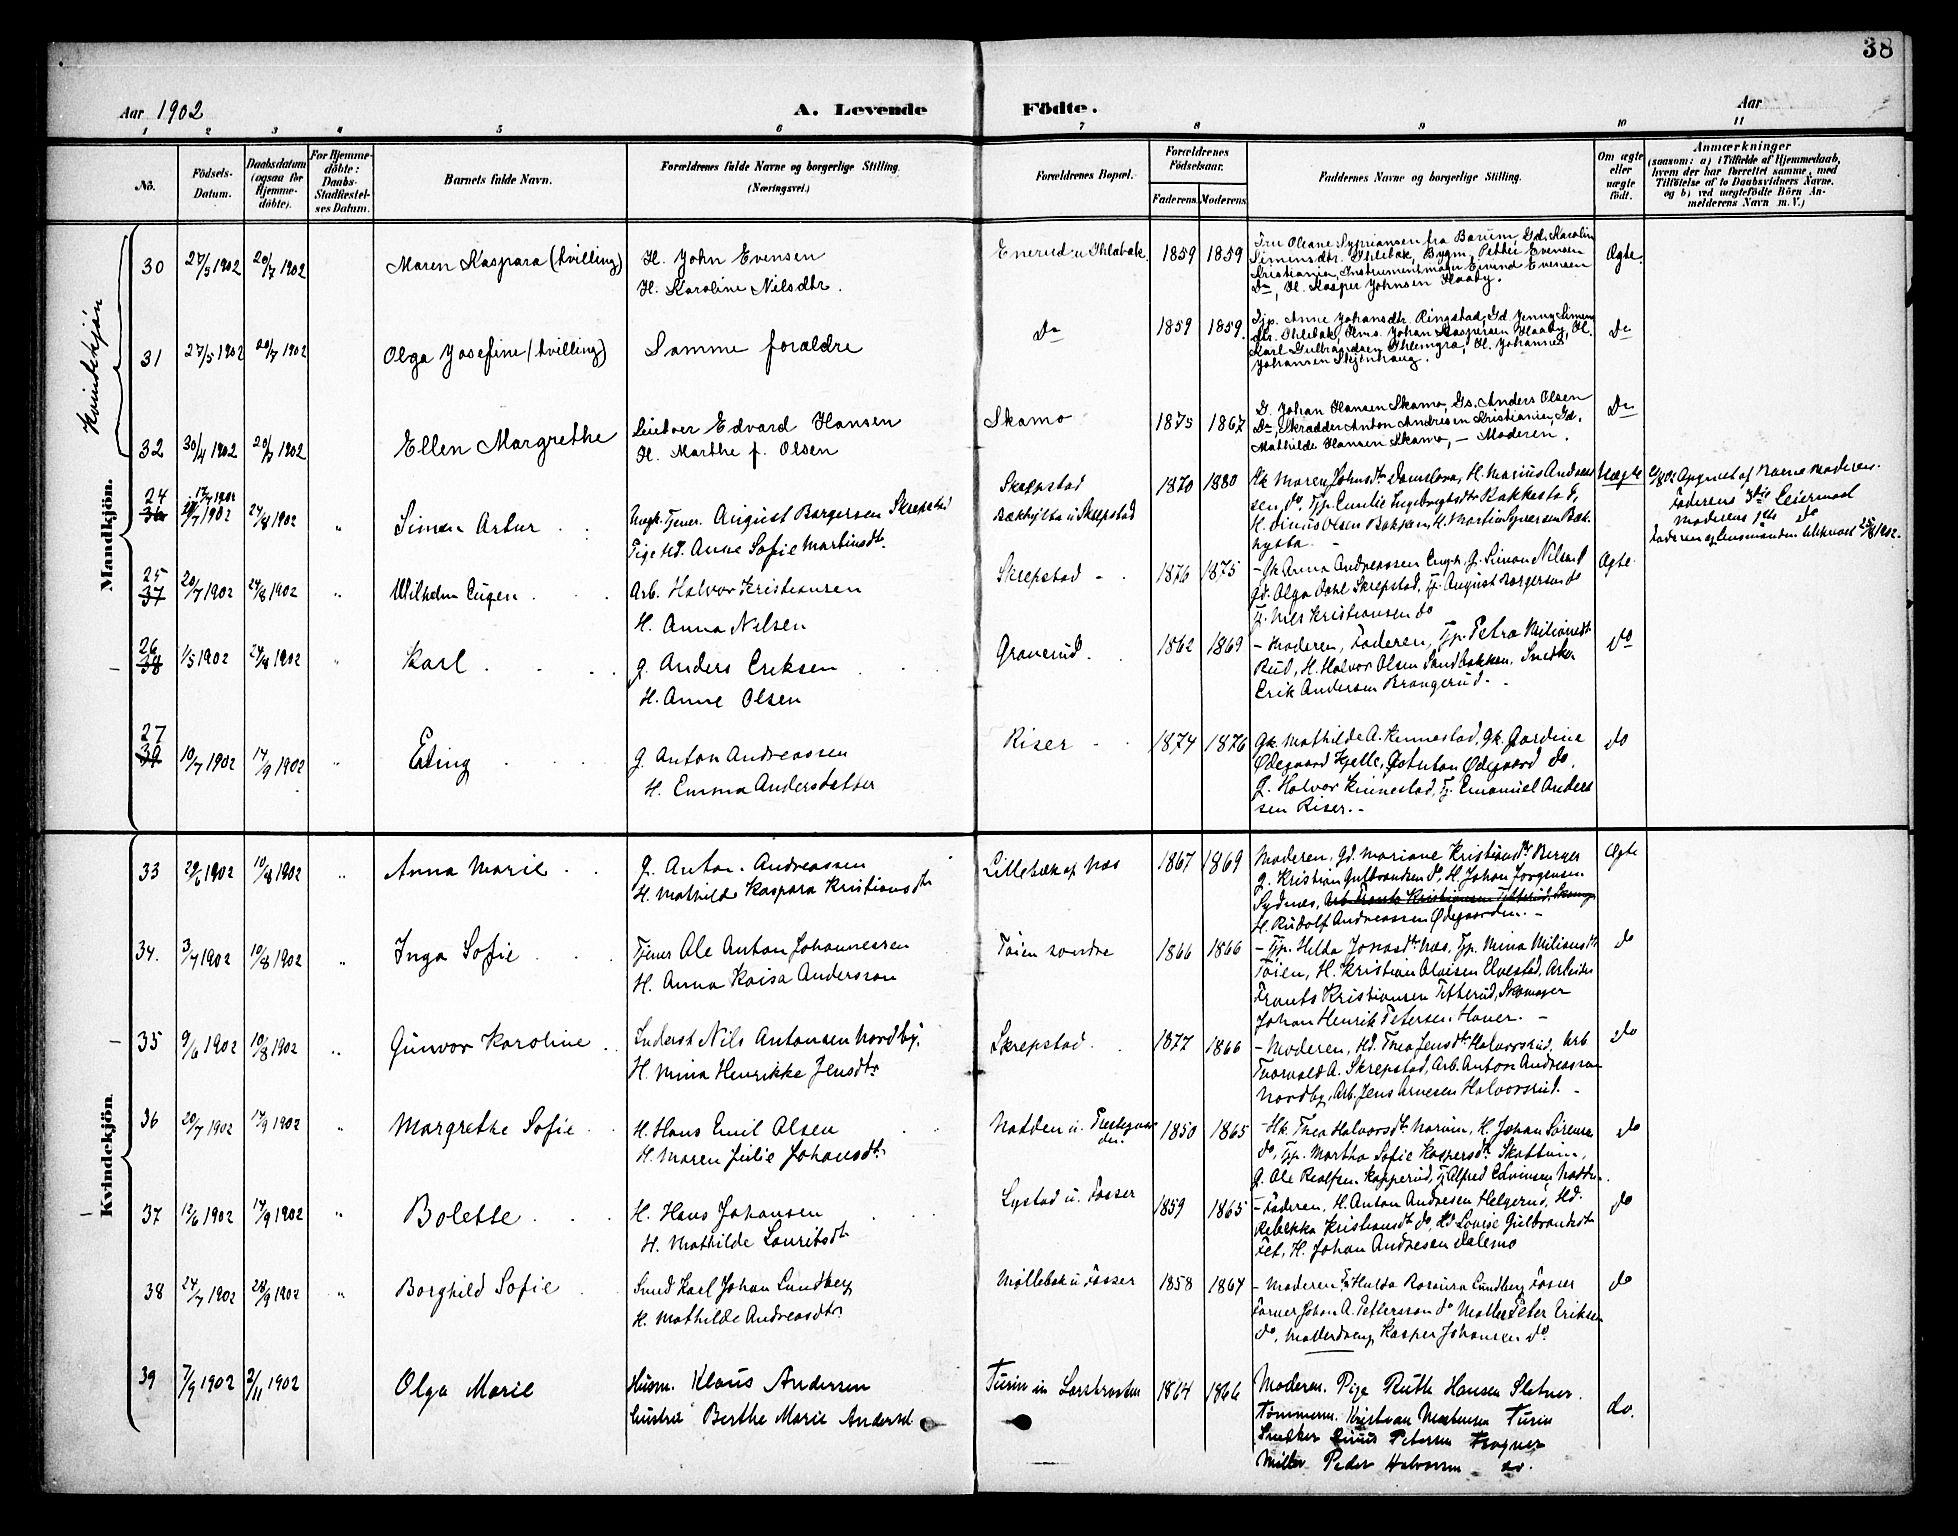 38
Aar 1902
A. Levende Födte.
Aar
1 2 3 4 5 6 7 8 9 10 11
No.
Födsels-Datum.
Daabsdatum (ogsaa for Hjemme-döbte).
For Hjemme-döbte: Daabs-Stadfæstel-ses Datum.
Barnets fulde Navn.
Forældrenes fulde Navne og borgerlige Stilling. (Næringsvei.)
Forældrenes Bopæl.
Forældrenes Födselsaar.
Faderens. Moderens.
Faddernes Navne og borgerlige Stilling.
Om ægte eller uægte födt.
Anmærkninger
(saasom: a) i Tilfælde af Hjemmedaab,
hvem der har forrettet samme, med
Tilföielse af to Daabsvidners Navne,
og b) ved uægtefödte Börn An-
melderens Navn m. V.)
Kvindekjön
30 27/5 1902 20/7 1902 Maren Kaspara (tvilling) H. John Evensen
H. Karoline Nilsdtr.
Enerud u Ihlebæk 1859 1859
Fru Oleane Sypriansen fra Bærum, Gd. Karolin
Simensdtr. Ihlebæk, Bygm. Petter Evensen
Kristiania, Instrumentmager Eivind Evensen
Do, H. Kasper Johnsen Haaby.
Ægte.
31 27/5 1902 20/7 1902 Olga Josefine (tvilling) Samme forældre
Do 1859 1859.
Tjp. Anne Johansdtr. Ringstad, Gd. Jenny Simens
dtr. Ihlebæk, Hms. Johan Kaspersen Haaby, H.
Karl Gulbrandsen Ihlemyra, H. Johannes
Johansen Stjenhaug.
Do
32 30/4 1902 20/7 1902 Ellen Margrethe Leieboer Edvard Hansen
H. Marthe f. Olsen
Skamo 1875 1867
G. Johan Hansen Skamo, Gs. Anders Olsen
Do, Skrædder Anton Andresen Kristiania, Gd.
Mathilde Hansen Skamo, - Moderen.
Do
Mandkjön.
24 36 17/7 1902 24/8 1902 " Simen Artur Ungk. Tjener. August Borgersen Skrepstad
Pige Hd. Anne Sofie Martinsdtr.
Skrepstad
Bækhytta u Skrepstad 1870 1880
Gk. Maren Johnsdtr H. Marius Andreas
sen do, Tjp. Emilie Ingeborgsdtr Rakkestad,
H. Olsen H. Martin Bæk-
hytta. -
Uægte
Opgivet af Barnets Moder.
Faderens 3die Leiermaal
Moderens 1ste do
25 37 20/7 1902 24/8 1902 " Wilhelm Eugen Arb. Halvor Kristiansen
H. Anna Nilsen
Skrepstad 1876 1875
- Gk Anna Andreassen Engh. G. Simon Nilsen
Gd. Olga Dahl Skrepstad, Tj. August Borgersen do
Tj. Nils Kristiansen do
Ægte
26 38 1/5 1902 24/8 1902 " Karl G. Anders Eriksen
H. Anne Olsen
Granerud 1862 1869
- Moderen, Faderen, Tjp. Petra
Rud, H. Halvor Olsen Sandbakken, Snedker
Erik Andersen Brangerud. -
do
27 39 10/7 1902 14/9 1902 " Eding G. Anton Andreassen
H. Emma Andersdatter
Riser 1874 1876
Gk. Mathilde A. Kinnestad, Gk. Gardine
Ødegaard Hjelle, G. Anton Ødegaard do,
G. Halvor Kinnestad, Tj. Emanuel Andreas
sen Riser. -
do
Kvindekjön
33 29/6 1902 10/8 1902 " Anna Marie G. Anton Andreassen
H. Mathilde Kaspara Kristiansdtr
Lillebæk af Næs 1867 1869
Moderen, Gd. Mariane Kristiansdtr Berger
G. Kristian Gulbrandsen do, H. Johan Jørgensen
Sydnes, Arb. Frants Kristiansen Titterud,
H. Rudolf Andreassen Ødegaarden. -
Ægte
34. 3/7 1902 10/8 1902 " Inga Sofie Tjener Ole Anton Johannessen
H. Anna Kaisa Andersson
Tøien søndre 1866 1866
- Tjp. Hilda Jonasdtr Næs, Tjp. Mina Miliansdtr
Tøien, H. Kristian Olaisen Elvestad, Arbeider
Frants Kristiansen Titterud, Skomager
Johan Henrik Petersen Haver. -
do
35 9/6 1902 10/8 1902 " Gunvor Karoline Inderst Nils Antonsen Nordby.
H. Mina Henrikke Jensdtr
Skrepstad. 1877 1866
- Moderen, Hd. Thea Jensdtr Halvorsrud, Arb
Thorvald A. Skrepstad, Arb. Anton Andreassen
Nordby, Arb. Jens Arnesen Halvorsrud. -
do
36 20/7 1902 14/9 1902 Margrethe Sofie H. Hans Emil Olsen
H. Maren Julie Johansdtr
Nadden u. Prestegaarden. 1850 1865
- Hk. Thea Halvorsdtr Narum, H. Johan Sørensen
do, Tjp. Martha Sofie Kaspersdtr Skottum,
G. Ole Realfsen Kopperud, Tj. Alfred Edvinsen Nadden.
do
37 15/6 1902 14/9 1902 " Bolette H. Hans Johansen
H. Mathilde Lauritsdtr
Lystad u. Fosser 1859 1865
- Faderen, H. Anton Andresen Helgerud, Hd.
Rebekka Kristiansdtr do, Hd Lovise Gulbrandsdtr
Fet, H. Johan Andresen Dalemo
do
38 24/7 1902 28/9 1902 " Borghild Sofie Smed Karl Johan Lundberg
H. Mathilde Andreasdtr
Møllebæk u Fosser 1858 1864
- Moderen, Hulda Rosaura Lundberg Fosser
Farver Johan A. Pettersson do Møller Peter Eriksen
do, Møllerdreng Kasper Johansen do
do
39 7/9 1902 2/11 1902 Olga Marie Husm. Klaus Andersen
hustru Berthe Marie Andersd
Turin u 1864 1866
Moderen. Pige Ruth Hansen Sletner.
Tømmerm. Kristian Mortensen Turin
Snedker Petersen Frogner
Møller Peder Halvorsen do.
do.